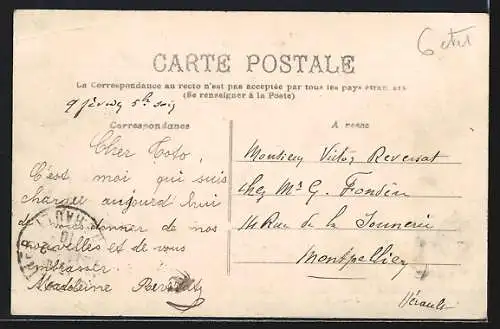 6 ctes
CARTE POSTALE
La Correspondance au recto n'est pas acceptée par tous les pays étrangers
(Se renseigner à la Poste)
9 février 5h soir
Correspondance
Cher Toto,
C'est moi qui suis
chargée aujourd'hui
de vous donner de nos
nouvelles et de vous
embrasser.
Madeleine
Adresse
Monsieur Victor Reversat
chez Mr G. Fondeu
14 Rue de la
Montpellier
Hérault